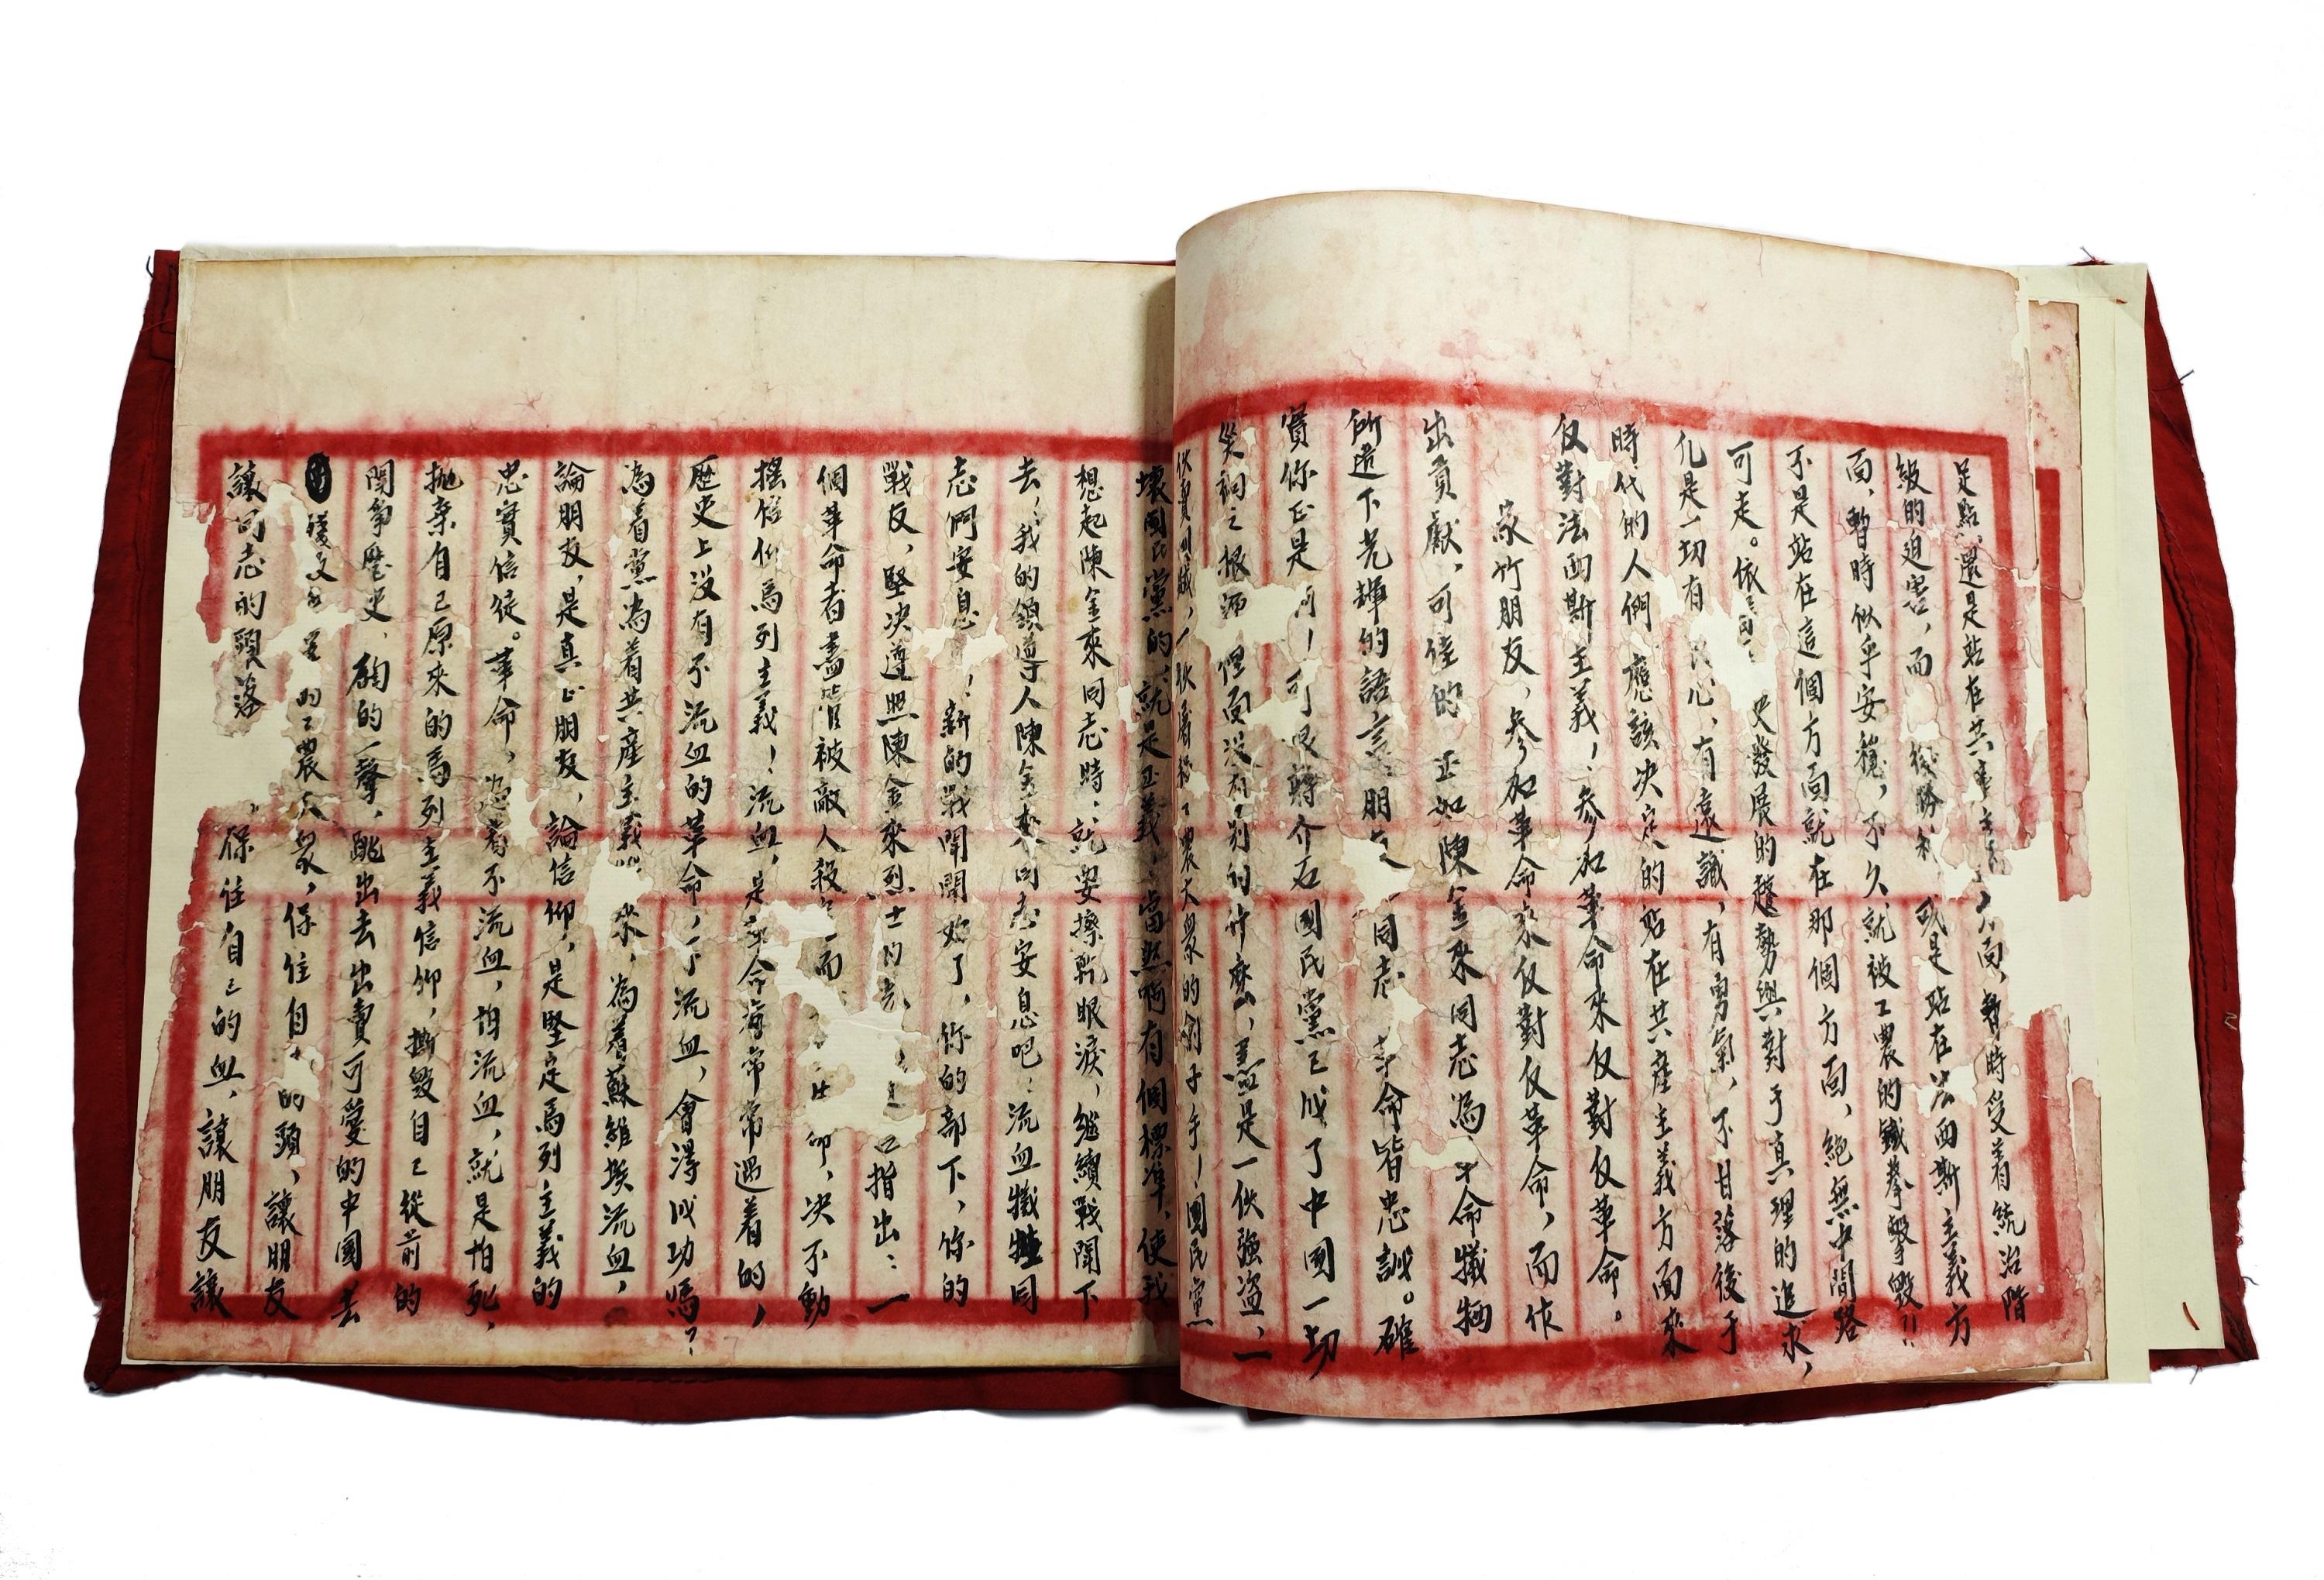 足點還是站在共產主 面，暫時受着統治階
級的迫害，而 後勝利 或是站在法西斯主義方
面，暫時似乎安穩，不久就被工農的鐵拳擊毀!!
不是站在這個方面就在那個方面，絕無中間路
可走。依 史發展的趨勢與對于真理的追求，
凡是一切有 心，有遠識，有勇氣，不甘落後于
時代的人們 應該決定的站在共產主義方面來
仅對法西斯主義！參加革命來仅對仅革命。
家竹朋友，參加革命來仅對仅革命，而作
出貢獻，可佳的 正如陳金來同志為 命犧牺
所遺下光輝的語言 朋 同志 革命皆忠訓。確
實你正是 可恨蔣介石國民黨已成了中國一切
災祠之根源 裡面没有別的什麼，盡是一伙強盜，一
伙賣國賊，一伙屠殺工農大衆的劊子手！國民黨
壞國民黨的，就是正義，當然啊有個標準，使我
想起陳金來同志時：就安擦乾眼淚，繼續戰鬪下
去！我的領導人陳金來同志安息吧：流血犧牲同
志們安息！新的戰鬪開始了，你的部下，你的
戰友，堅決遵照陳金來烈士的 指出：一
個革命者盡管被敵人殺 而 仰，决不動
搖信仰馬列主義！流血，是革命海常常遇着的，
歷史上没有不流血的革命，了流血，會得成功嗎？
為着黨為着共產主義 來，為着蘇維埃流血，
論朋友，是真正朋友，論信仰，是堅定馬列主義的
忠實信徒。革命，忌着不流血，怕流血，就是怕死，
拋棄自己原來的馬列主義信仰，撕毀自己從前的
鬪爭歷史，鞠的一聲，跳出去出賣可愛的中國去
的工農大衆，保住自 的頭，讓朋友
讓同志的頭落 ，保住自己的血，讓朋友讓